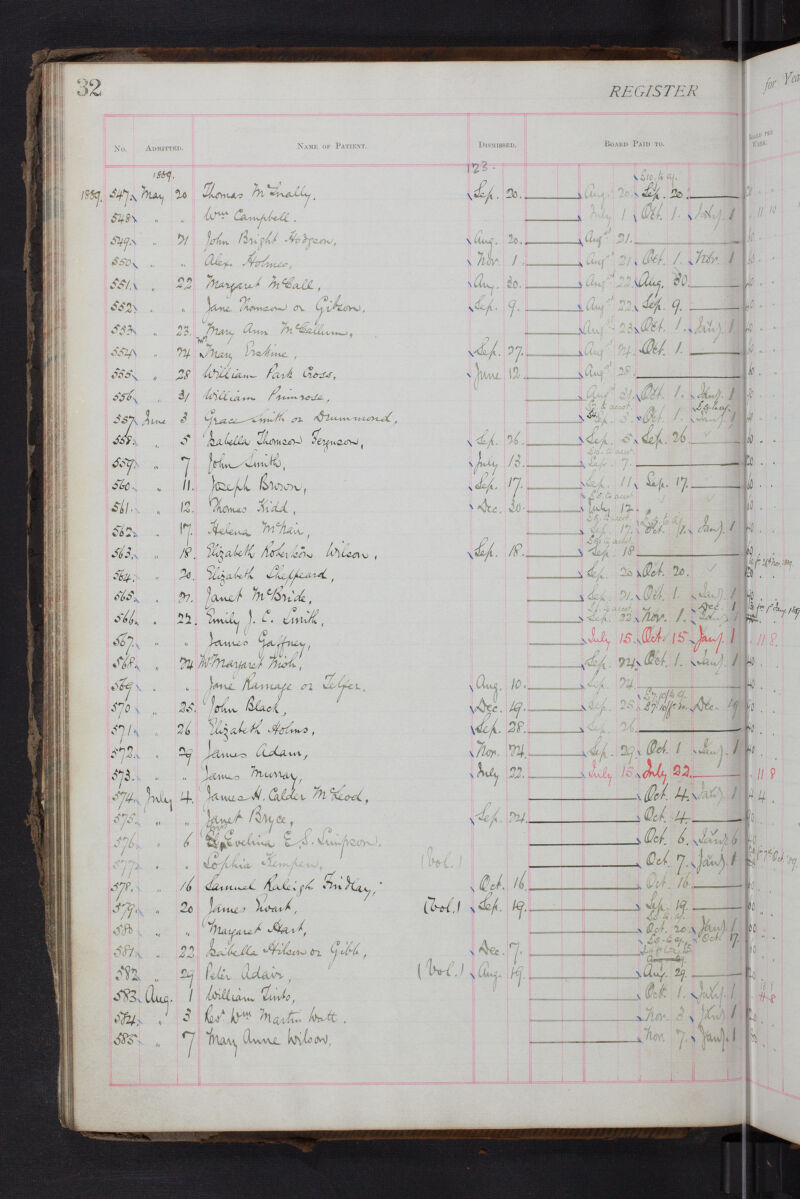 32
REGISTER
for Yea
No. Admitted. Name of Patient. Dismissed. Board Paid to.
1889. 123.
£10. to ac/.
1889. 547. May 20 Thomas McInally. Sep. 20. Aug. 20. Sep. 20.
548 " " Wm Campbell. July 1 Oct. 1. July. 1 11 10
549 " 21 John Bright Hodgson, Aug. 20. Augt 21.
550 " " Alex. Holmes, Nov. 1. Augt 21 Oct. 1. Nov. 1
551 " 22 Margaret McCall, Aug. 30. Augt 22 Aug. 30
552 " " Jane Thomson or Gibson, Sep. 9. Augt 22 Sep. 9.
553 " 23. Mary Ann McCallum, Augt 23 Oct. 1. Jany. 1
554 " 24 Mrs Mary Erskine, Sep. 27. Augt 24. Oct. 1.
555 " 28 William Park Cross, June 12 Augt 28.
556 " 31 William Primrose, Augt 31. Oct. 1. Jany. 1
557 June 3 Grace Smith or Drummond, Sep. 3. Oct. 1. Jany. 1
558. " 5 Isabella Thomson Ferguson, Sep. 26. Sep. 5 Sep. 26.
559 " 7 John Smith, July 13. Sep. 7.
560 " 11. Joseph Brown, Sep. 17. Sep. 11 Sep. 17.
561 " 12. Thomas Kidd, Dec. 20. July 12.
562 " 17. Helena McNair, Sep. 17. Oct. 1. Jany. 1
563. " 18. Elizabeth Robertson Wilson, Sep. 18. Sep. 18
564. " 20. Elizabeth Sheppeard, Sep. 20 Oct. 20.
565. " 21. Janet McBride, Sep. 21. Oct. 1. Jany. 1
566 " 22. Emily J. C. Smith, Sep. 22 Nov. 1.
567. " " James Gaffney, July 15. Oct. 15 Jany. 1 11 8.
568. " 24 Mrs Margaret Nish, Sep. 24 Oct. 1. Jany. 1
569 " " Jane Ramage or Telfer. Aug. 10. Sep. 24.
570 " 25. John Black, Dec. 19. Sep. 25 Dec. 19
571 " 26 Elizabeth Holms, Sep. 28. Sep. 26.
572. " 29 James Adam, Nov. 24. Sep. 29. Oct. 1 Jany. 1
573. " " James Murray, July 22. July 15 July 22. 11 8
574. July 4. James H. Calder McLeod, Oct. 4. Jany. 1
575. " " Janet Bryce, Sep. 24. Oct. 4.
576 " 6 Evelina E. S. Simpson. Oct. 6. Jany. 6
577 " " Sophia Kempen, (Vol.) Oct. 7. Jany. 1
578. " 16 Samuel Raleigh Findlay, Oct. 16 Oct. 16
579 " 20 James Ewart, (Vol.) Sep. 19. Sep. 19.
580 " " Margaret Hart, Oct. 20 Jany. 1
581 " 22. Isabella Hilson or Gibb, Dec. 7.
582 " 29 Peter Adair, (Vol.) Aug. 19 Aug. 29
583. Aug. 1 William Tints, Oct. 1. July. 1
584 " 3 Revd Wm Martin Watt. Nov. 3. Jany. 1
585 " 7 Mary Anne Wilson. Nov. 7. Jany. 1